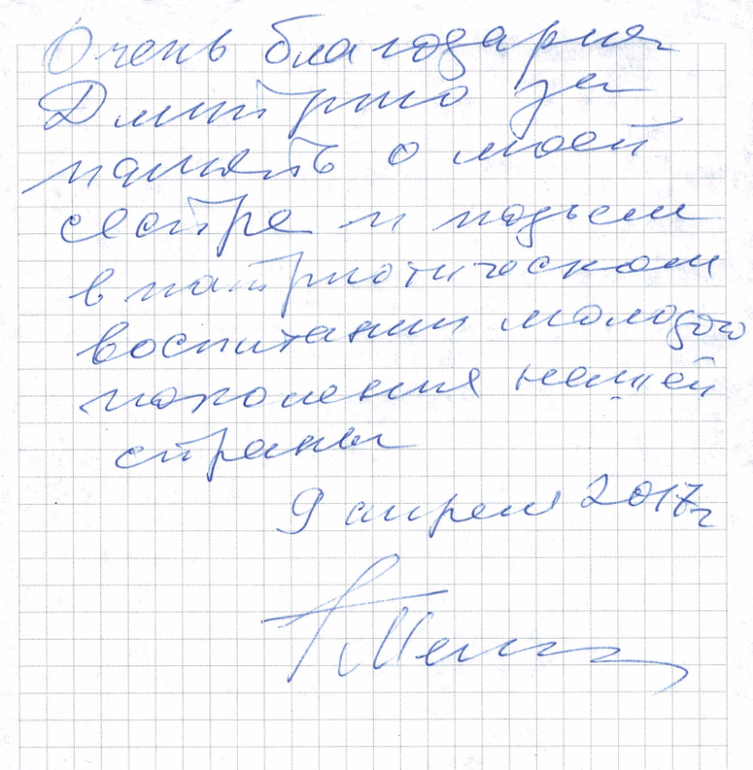 Очень благодарна
Дмитрию за
память о моей
сестре и подъем
в патриотическом
воспитании молодого
поколения нашей
страны
9 апреля 2017 г